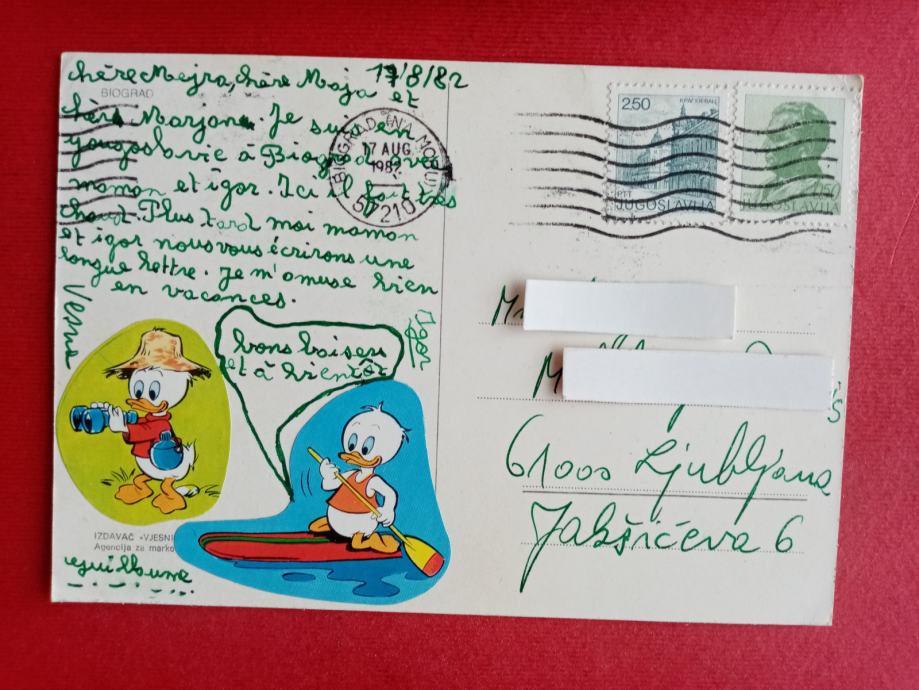 chère Mejra, chère Maja et 17/8/82
BIOGRAD
chère Marjana. Je suis en
yougoslavie à Biograd avec
maman et igor. Ici il fait très
chaud. Plus tard moi maman
et igor nous vous écrirons une
longue lettre. Je m'amuse bien
en vacances.
Vesna
Igor
bons baisers
et à bientôt
IZDAVAČ «VJESNI
Agencija za marke
guillaume
BIOGRAD N/MORU
17 AUG.
1982
57210
2.50
PTT
JUGOSLAVIJA
JUGOSLAVIJA
M
M
61000 Ljubljana
Jakšićeva 6